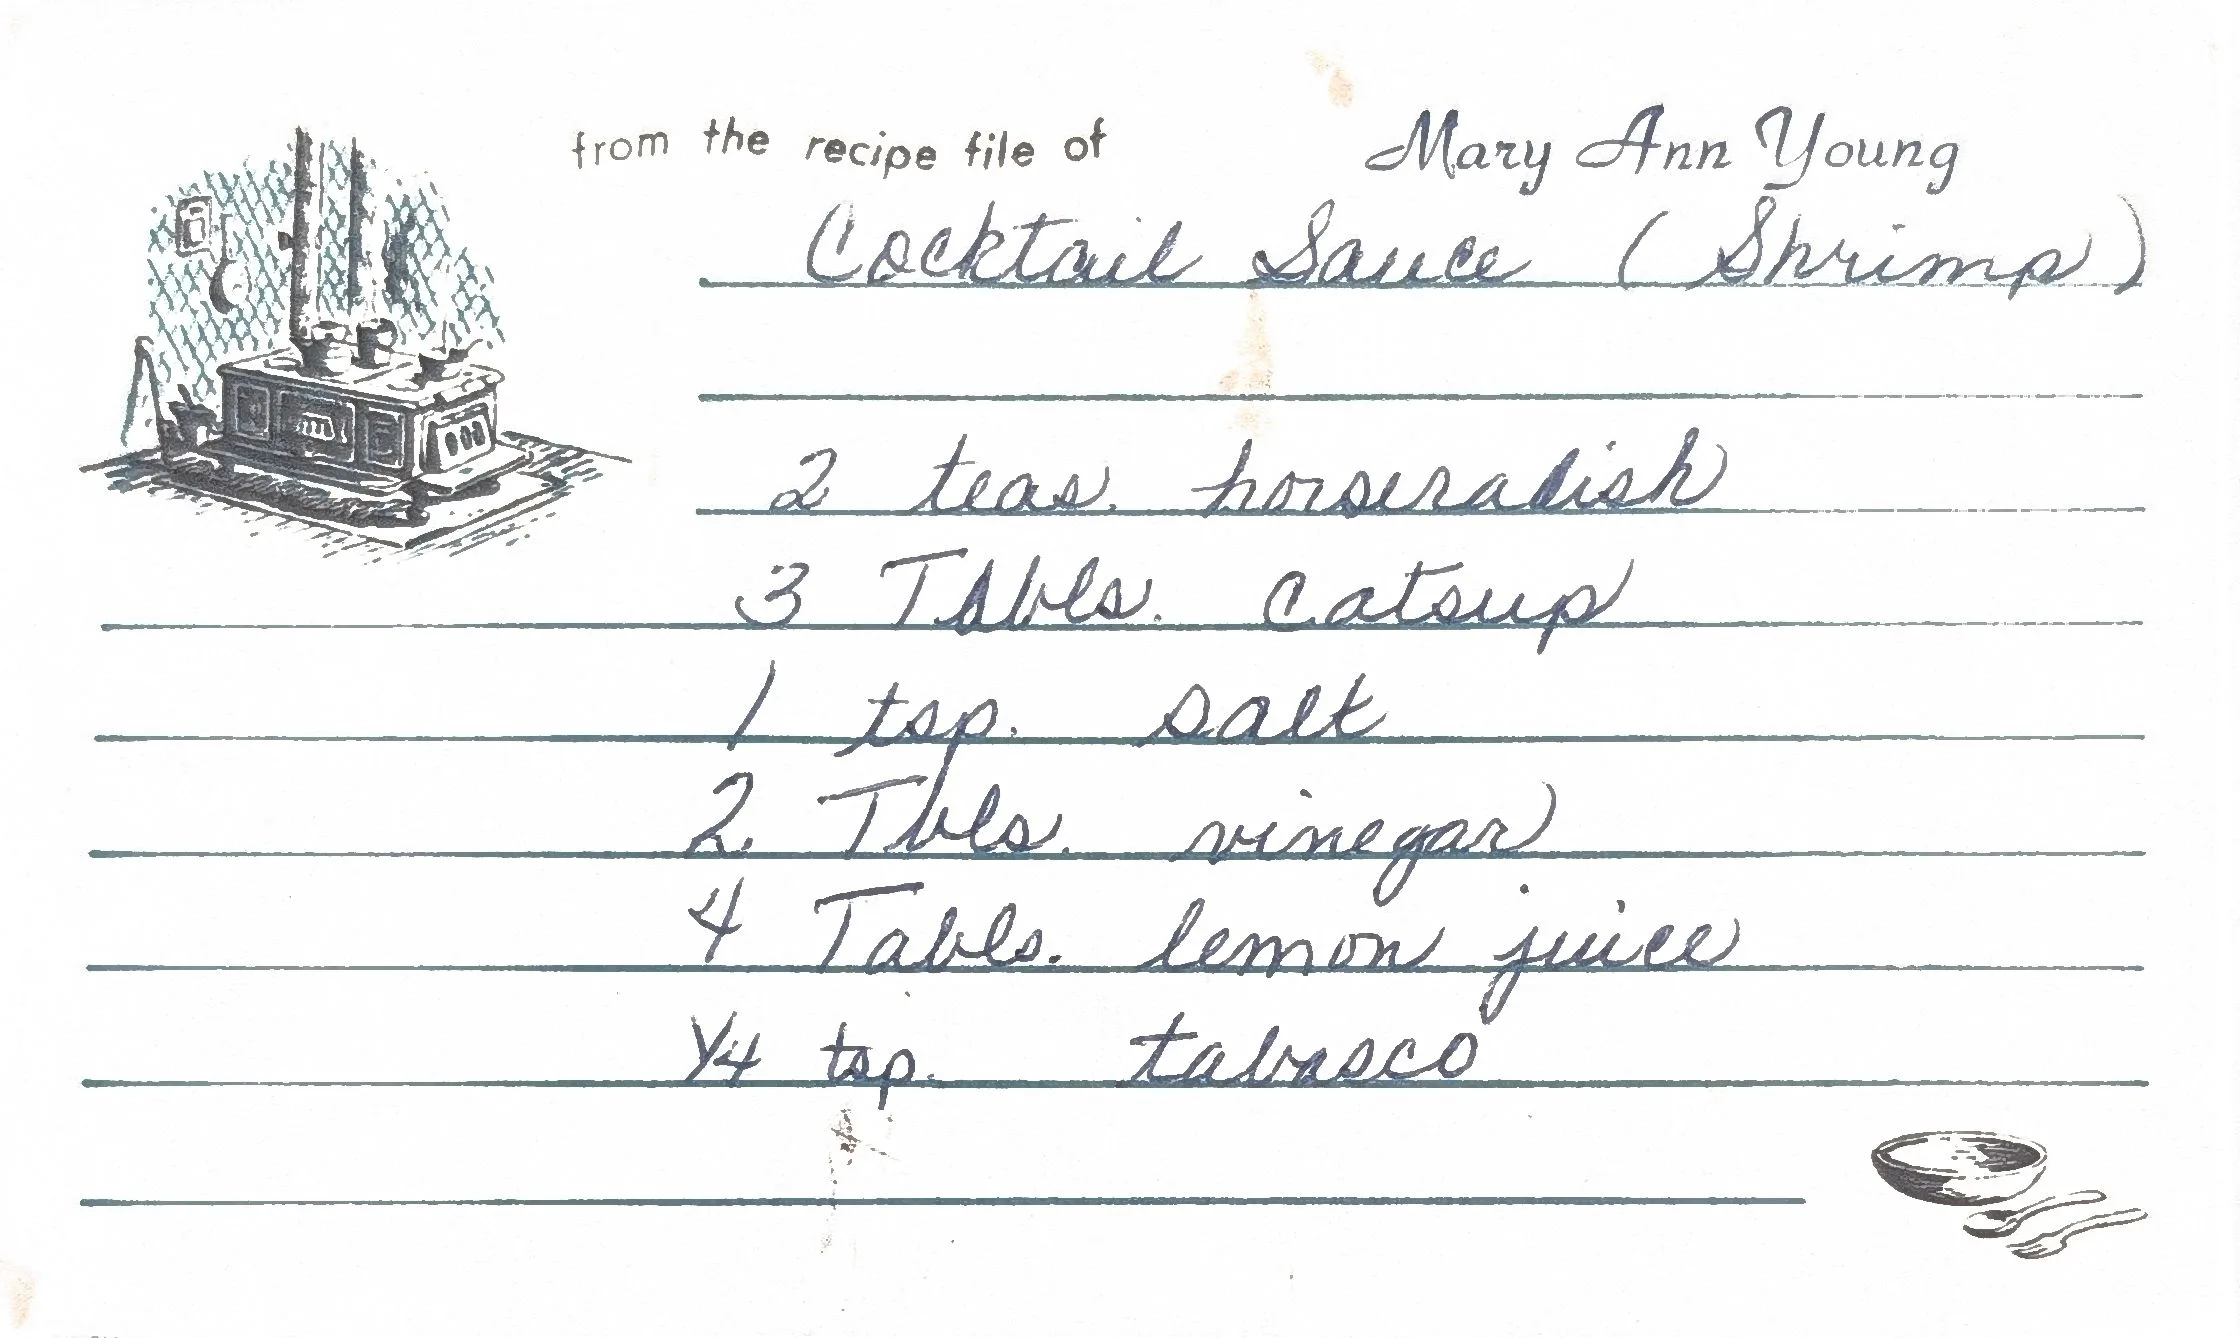 from the recipe file of Mary Ann Young
Cocktail Sauce (Shrimp)
2 teas. horseradish
3 Tables. catsup
1 tsp. salt
2 Tbls. vinegar
4 Tabls. lemon juice
1/4 tsp. tabasco